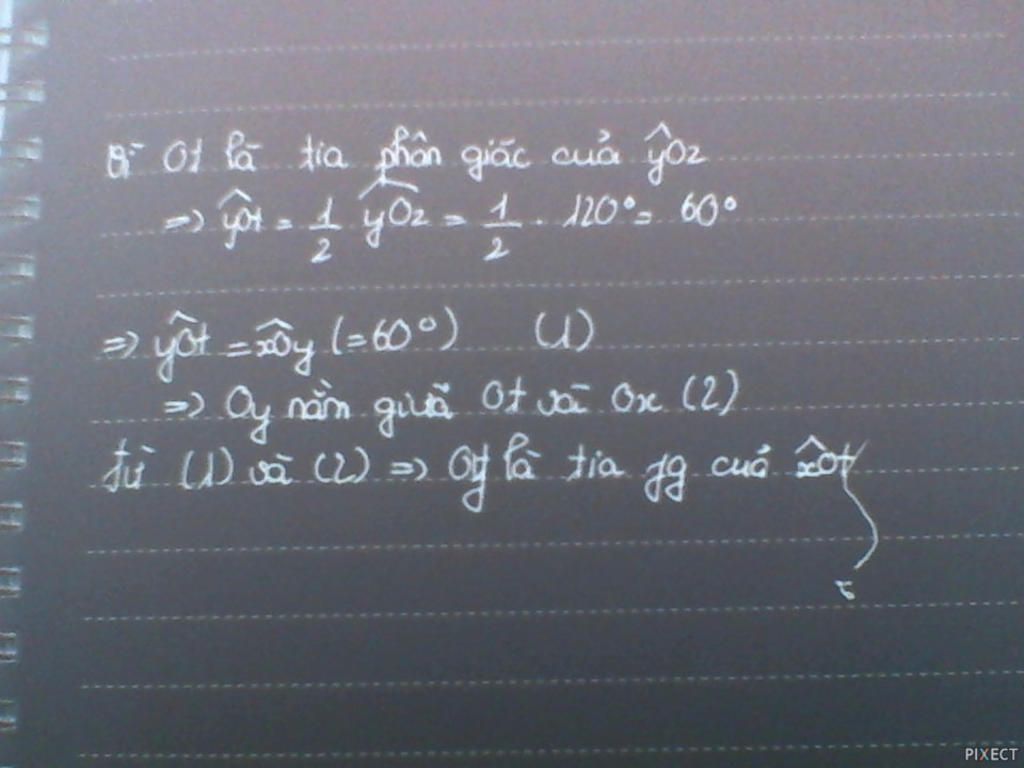 Vì Ot là tia phân giác của ŷOz
=> ŷOt = 1/2 ŷOz = 1/2 . 120° = 60°
=> ŷOt = xÔy (= 60°) (1)
=> Oy nằm giữa Ot và Ox (2)
từ (1) và (2) => Oy là tia pg của xÔt
PIXECT